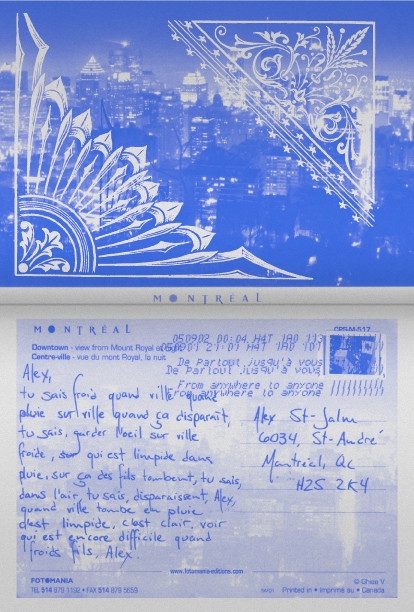 MONTRÉAL
MONTRÉAL
CPS-M-517
Downtown - view from Mount Royal at night
Centre-ville - vue du mont Royal, la nuit
050902 00:04 H4T 1A0
050901 21:01 H4T 1A0
De Partout jusqu'à vous
De Partout jusqu'à vous
From anywhere to anyone
From anywhere to anyone
Alex,
tu sais froid quand ville
pluie sur ville quand ça disparaît,
tu sais, garder l'oeil sur ville
froide, sur qui est limpide dans
pluie, sur ça des fils tombent, tu sais,
dans l'air, tu sais, disparaissent, Alex,
quand ville tombe en pluie
c'est limpide, c'est clair, voir
qui est encore difficile quand
froids fils, Alex.
Alex St-Jalm
6034, St-André
Montréal, Qc
H2S 2K4
www.fotomania-editions.com
FOTOMANIA
TEL 514 870 1136 • FAX 514 879 5659
© Chase V
Printed in • Imprimé au • Canada